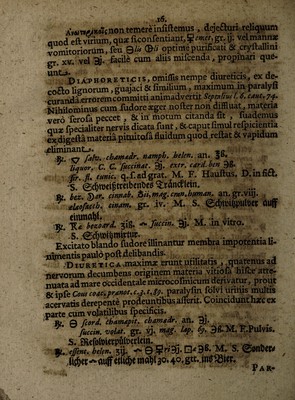 26.
non temere insistemus , dejecturi reliquum
quod est virium, quæ si consentiant, gr. ij. vel mannæ
vomitoriorum, seu optime purificati & crystallini
gr. xv. vel facile cum aliis miscenda , propinari queunt.
DIAPHORETICIS, omissis nempe diureticis, ex decocto
lignorum, guajaci & similium, maximum in paralysi
curanda errorem committi animadvertit Sepulius l. 8. caut. 74.
Nihilominus cum sudore æger noster non diffluat, materia
vero serosa peccet , & in motum citanda sit , suademus
quæ specialiter nervis dicata sunt , & caput simul respicientia
ex digesta materia pituitosa fluidum quod restat & vapidum
eliminant.
℞. salv. chamadr. nymph. helen. an.
liquor. C. C. succinat. exter. card. ben.
fir. fl. tunic. q. s. ad grat. M. F. Haustus. D. in sect.
S. Schweißtreibendes Tränclein.
℞. bez. cinnab. mag. cran. human. an. gr. viii.
cinam. gr. iv. M. S. Schwitzpulver auff
einmahl.
℞. bezoard. succin. M. in vitro.
S. Schwitzmixtur.
Excitato blando sudore illinantur membra impotentia linimentis
paulò post delibandis.
DIURETICA maximæ erunt utilitatis , quatenus ad
nervorum decumbens originem materia vitiosa hisce attenuata
ad mare occidentale microcosmicum derivatur, prout
& ipse paralysin solvi urinis multis
acervatis derepente prodeuntibus asserit. Coincidunt hæc ex
parte cum volatilibus specificis.
℞. scord. chamapit. chamædr. an.
succin. volat. gr. vj. mag. lap. M. F. Pulvis.
S. Resolvierpülverlein.
℞. essent. helen. M. S. Sonderlicher
auff etliche mahl 30. 40. gtt. ins Bier.
PAR-